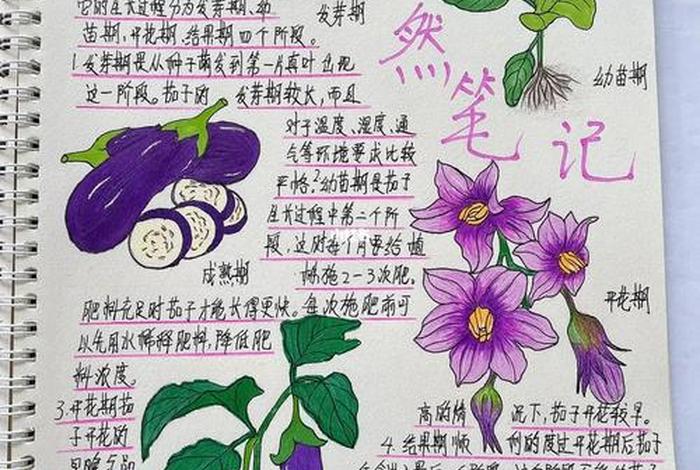 它的生长过程分为发芽期、幼
发芽期
苗期、开花期、结果期四个阶段。
1.发芽期是从种子萌发到第一片真叶出现
这一阶段。茄子的 发芽期较长,而且
幼苗期
然笔记
对于温度、湿度、通
气等环境要求比较
严格。2.幼苗期是茄子
生长过程中第二个阶
段,这时每个月要给植
成熟期
株施2-3次肥。
开花期
肥料充足时茄子才能长得更快。每次施肥前可
以先用水稀释肥料,降低肥
料浓度。
3.开花期茄
子开花的
高的情 况下,茄子开花较早。
4.结果期顺 利的度过开花期后茄子